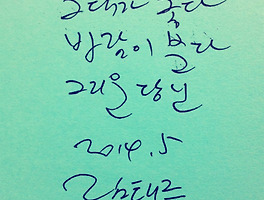 그대가 좋다
바람이 분다
그리운 당신
2014.5